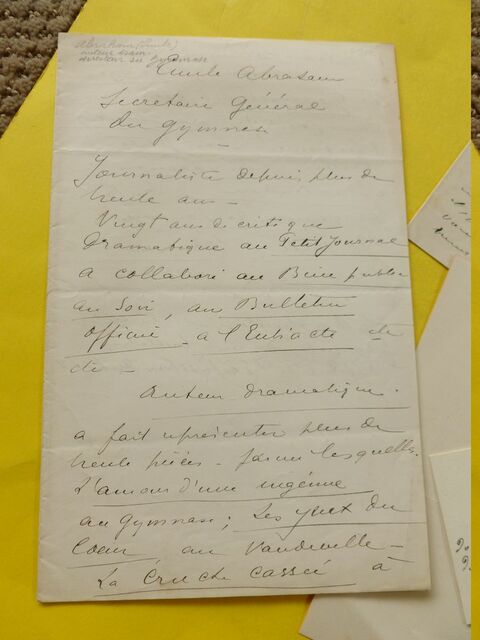 Abraham (Emile)
auteur dram.
directeur du gymnase
Emile Abraham
Secrétaire Général
du gymnase
Journaliste depuis plus de
trente ans -
Vingt ans de critique
Dramatique au Petit Journal
a collaboré au Bien public
au Soir, au Bulletin
officiel - a l'Entracte etc
etc -
Auteur dramatique.
a fait représenter plus de
trente pièces - parmi lesquelles
L'amour d'une ingénue
au gymnase; Les yeux du
Coeur, au Vaudeville -
La Cruche cassée à